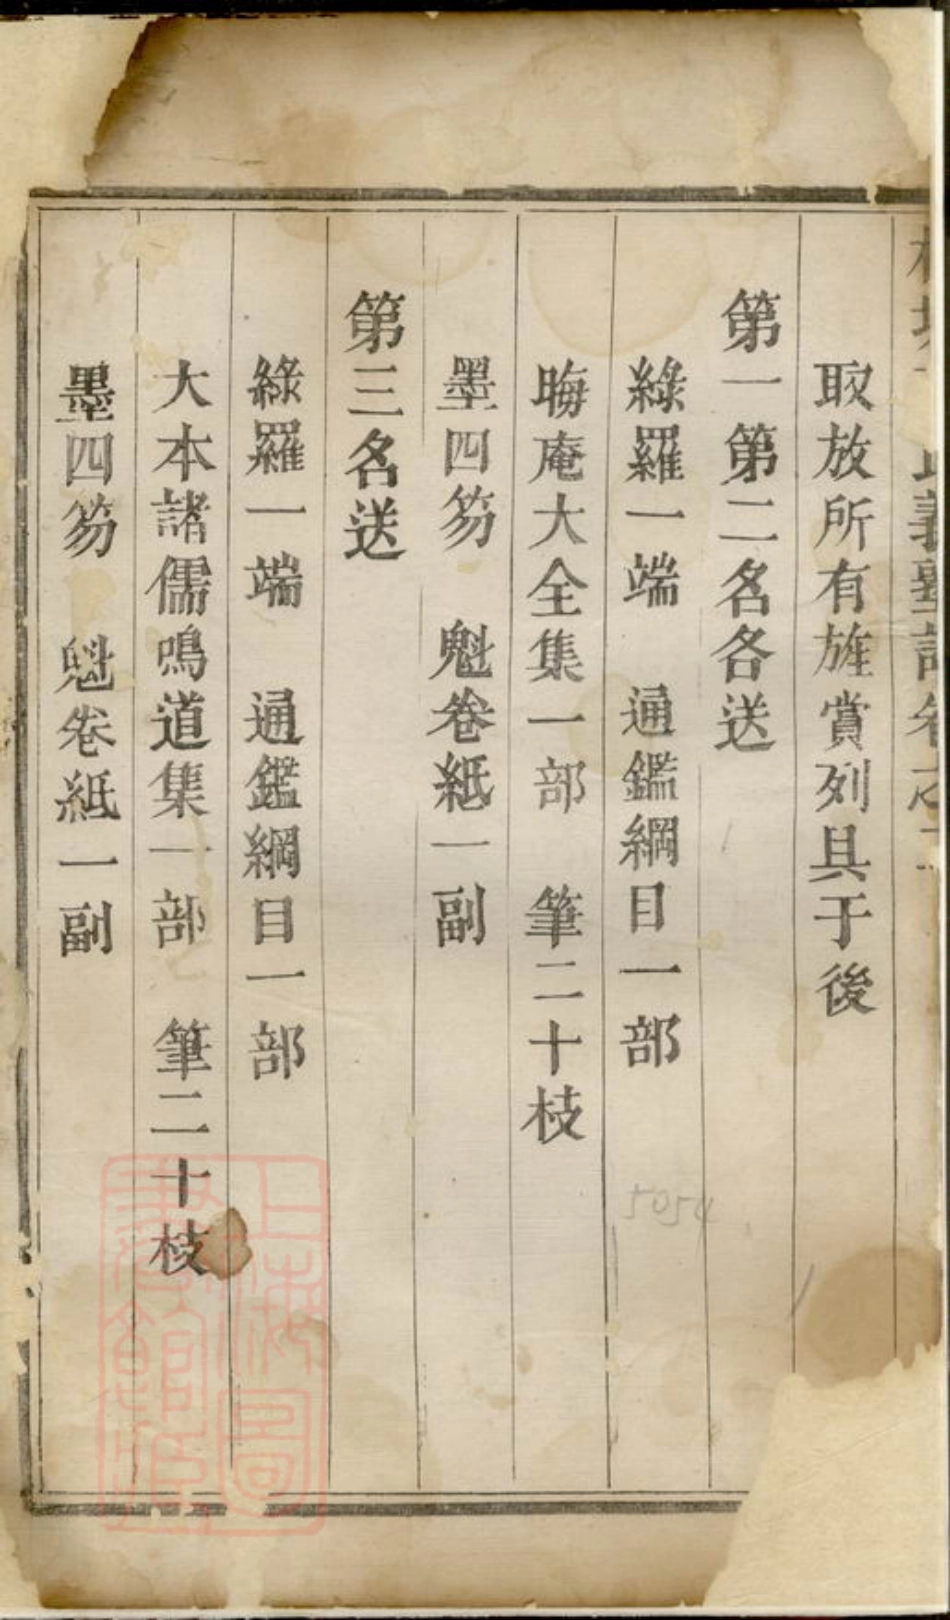 義塾記卷之二
取放所有旌賞列具于後
第一第二名各送
綠羅一端　通鑑綱目一部
晦庵大全集一部　筆二十枝
墨四笏　魁卷紙一副
第三名送
綠羅一端　通鑑綱目一部
大本諸儒鳴道集一部　筆二十枝
墨四笏　魁卷紙一副
5054
上海圖書館藏